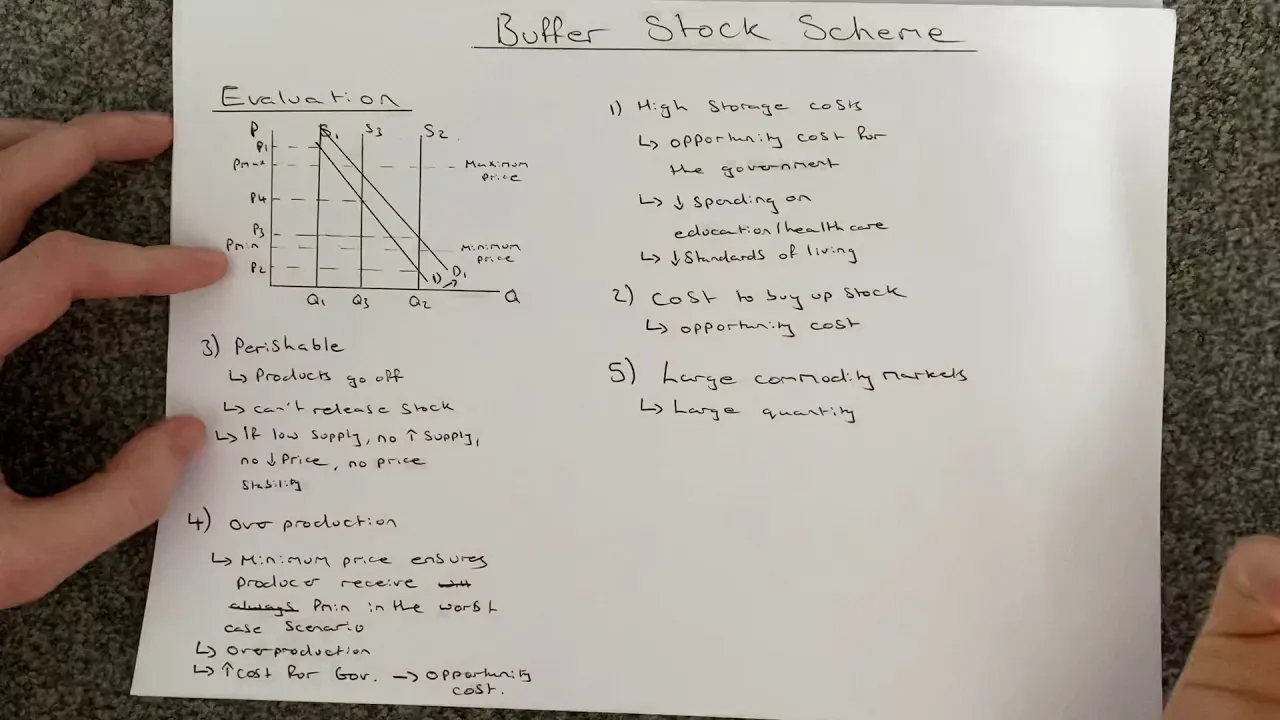 Buffer Stock Scheme
Evaluation
P
S1
S3
S2
P1
Pmax
Maximum
price
P4
P3
Pmin
Minimum
price
P2
D
D1
Q1
Q3
Q2
Q
3) Perishable
↳ Products go off
↳ can't release stock
↳ If low supply, no ↑ supply,
no ↓ Price, no price
stability
4) Over production
↳ Minimum price ensures
producer receive
always Pmin in the worst
case scenario
↳ overproduction
↳ ↑ cost for Gov. → opportunity
cost.
1) High storage costs
↳ opportunity cost for
the government
↳ ↓ spending on
education/healthcare
↳ ↓ standards of living
2) Cost to buy up stock
↳ opportunity cost
5) Large commodity markets
↳ Large quantity